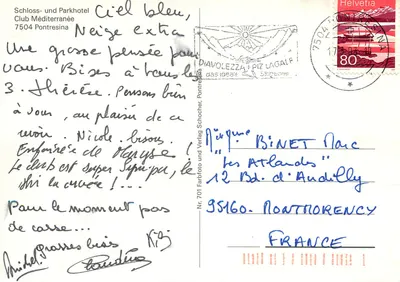 Schloss- und Parkhotel
Club Méditerranée
7504 Pontresina
Ciel bleu,
Neige extra
Une grosse pensée pour
vous. Bises à tous les
3. Thérèse. Pensons bien
à vous, au plaisir de ce
revoir. Nicole. bisous.
de
Le club est super sympa, le
ski !...
Pour le moment pas
de casse...
Grosses bises
Michel
Claudine
No. 701 Farbfoto und Verlag Schocher, Pontresina
DIAVOLEZZA PIZ LAGALB
das ideale
7504
17
Helvetia
80
BINET Marc
"Les Atlandes"
12 Bd. d'Andilly
95160. MONTMORENCY
FRANCE